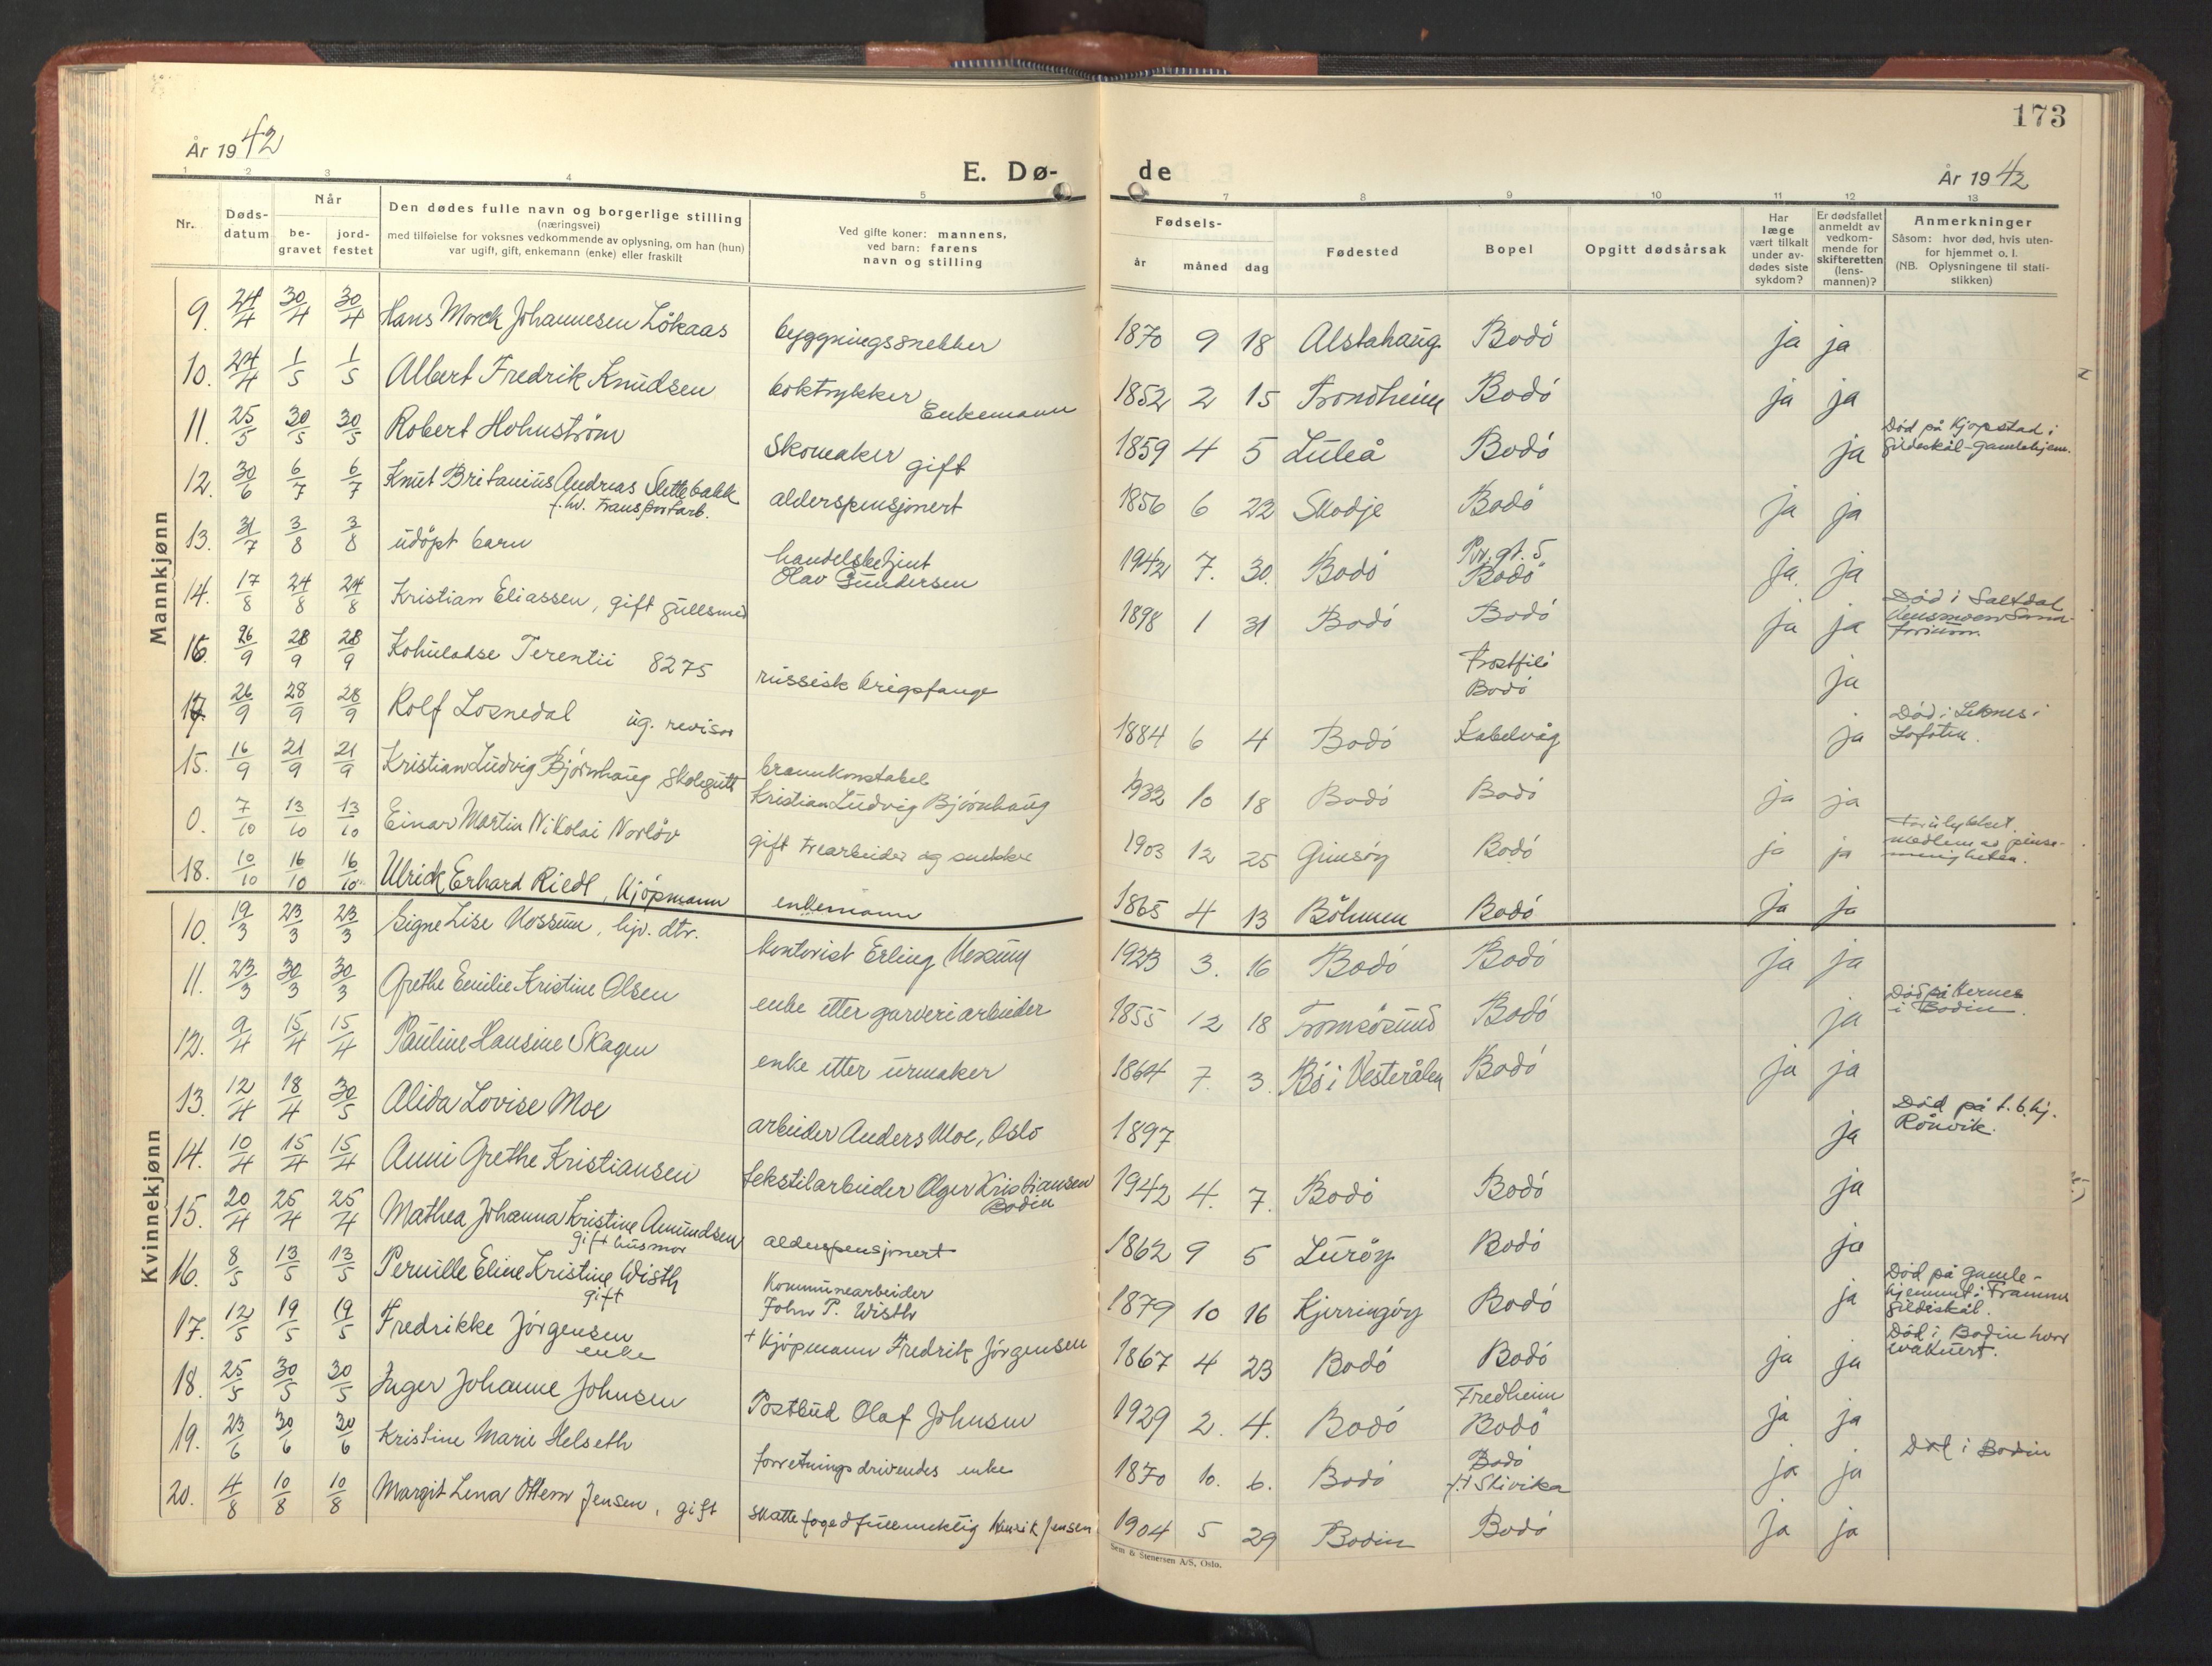 173
År 1942
E. Dø-
de
År 1942
1 2 3 4 5 7 8 9 10 11 12 13
Nr.
Døds-
datum
Når
be-
gravet
jord-
festet
Den dødes fulle navn og borgerlige stilling
(næringsvei)
med tilføielse for voksnes vedkommende av oplysning, om han (hun)
var ugift, gift, enkemann (enke) eller fraskilt
Ved gifte koner: mannens,
ved barn: farens
navn og stilling
Fødsels-
år måned dag
Fødested
Bopel
Opgitt dødsårsak
Har
læge
vært tilkalt
under av-
dødes siste
sykdom?
Er dødsfallet
anmeldt av
vedkom-
mende for
skifteretten
(lens-
mannen)?
Anmerkninger
Såsom: hvor død, hvis uten-
for hjemmet o. l.
(NB. Oplysningene til stati-
stikken)
Mannkjønn
9. 24/4 30/4 30/4 Hans Morck Johannesen Løkaas byggningssnekker 1870 9 18 Alstahaug Bodø ja ja
10. 24/4 1/5 1/5 Albert Fredrik Knudsen boktrykker Enkemann 1852 2 15 Trondheim Bodø ja ja
11. 25/5 30/5 30/5 Robert Holmstrøm Skomaker gift 1859 4 5 Luleå Bodø ja Død på Kjopstad i
Gildeskål-gamlehjem.
12. 30/6 6/7 6/7 Knut Britanius Andreas Slettebakk
f.hv. transportarb. alderspensjonert 1856 6 22 Skodje Bodø ja ja
13. 31/7 3/8 3/8 udøpt barn handelsbetjent
Olav Gundersen 1942 7. 30. Bodø Pr. gt. 5
Bodø ja. ja
14. 17/8 24/8 24/8 Kristian Eliassen, gift gullsmed 1898 1 31 Bodø Bodø ja ja Død i Saltdal
Vensmoen Sana-
torium.
16. 26/9 28/9 28/9 Kohuladse Terentii 8275 russisk krigsfange
Bodø ja
17. 26/9 28/9 28/9 Rolf Losnedal ug. revisor 1884 6 4 Bodø Kabelvåg ja Død i Leknes i
Lofoten.
15. 16/9 21/9 21/9 Kristian Ludvig Bjørnhaug skolegutt brannkonstabel
Kristian Ludvig Bjørnhaug 1932 10 18 Bodø Bodø ja ja
0. 7/10 13/10 13/10 Einar Martin Nikolai Norløv gift trearbeider og snekker 1903 12 25 Gimsøy Bodø ja ja Forulykket.
medlem av pinse-
menigheten.
18. 10/10 16/10 16/10 Ulrick Erhard Riedl, Kjøpmann enkemann 1865 4 13 Bøhmen Bodø ja ja
Kvinnekjønn
10. 19/3 23/3 23/3 Signe Lise Mossum, hjv. dtr. kontorist Erling 1923 3. 16 Bodø Bodø ja ja
11. 23/3 30/3 30/3 Grethe Emilie Kristine Olsen enke etter garveriarbeider 1855 12 18 Tromsøsund Bodø ja Død på Hernes
i Bodin.
12. 9/4 15/4 15/4 Pauline Hansine Skagen enke etter urmaker 1864 7. 3. Bø i Vesterålen Bodø ja ja
13. 12/4 18/4 30/5 Alida Lovise Moe arbeider Anders Moe, Oslo 1897 ja Død på t.b.hj.
Rønvik.
14. 10/4 15/4 15/4 Anni Grethe Kristiansen tekstilarbeider Olger Kristiansen
Bodin 1942 4. 7. Bodø Bodø ja
15. 20/4 25/4 25/4 Mathea Johanna Kristine Amundsen
gift husmor alderspensjonert 1862 9 5 Lurøy Bodø ja
16. 8/5 13/5 13/5 Pernille Eline Kristine Wisth
gift Kommunearbeider
John P. Wisth 1879 10 16 Kjerringøy Bodø ja Død på gamle-
hjemmet i Framnes
Gildeskål.
17. 12/5 19/5 19/5 Fredrikke Jørgensen
enke + Kjøpmann Fredrik Jørgensen 1867 4 23 Bodø Bodø ja ja Død i Bodin hvor
evakuert.
18. 25/5 30/5 30/5 Inger Johanne Johnsen Postbud Olaf Johnsen 1929 2. 4. Bodø Fredheim
Bodø ja ja
19. 23/6 30/6 30/6 Kristine Marie Helseth forretningsdrivendes enke 1870 10. 6. Bodø Bodø
f.t Skivika ja ja Død i Bodin
20. 4/8 10/8 10/8 Margit Lena Ottem Jensen, gift skattefogedfullmektig Henrik Jensen 1904 5 29 Bodin Bodø ja ja
Sem & Stenersen A/S, Oslo.